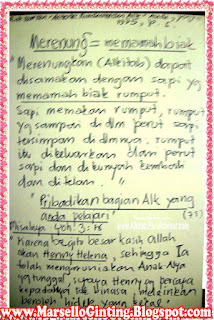 1975, P.
Merenung = memamah biak
"Merenungkan (Alkitab) dapat
disamakan dengan sapi yg
memamah biak rumput.
Sapi memakan rumput, rumput
yg sampai di dlm perut sapi
tersimpan di dlmnya. rumput
itu dikeluarkan dari perut
sapi dan dikunyah kembali
dan ditelan."
"Pribadikan bagian Alk yang
anda pelajari" (73)
Misalnya Yoh. 3:16
"Karena begitu besar kasih Allah
akan Henny Helena, sehingga Ia
telah mengaruniakan Anak-Nya
yg tunggal, supaya Henny yg percaya
kepadaNya tdk binasa, melainkan
beroleh hidup yang kekal".
www.MarselloGinting.Blogspot.com